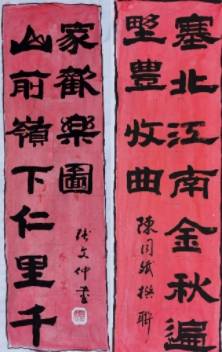 塞北江南金秋遍
野豐收曲
陳同撰聯
山前嶺下仁里千
家歡樂圖
張文仲書